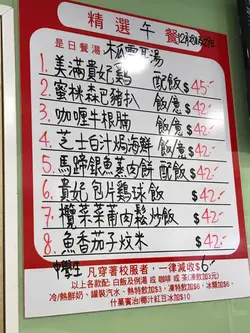 精選午餐
是日餐湯 木瓜雪耳湯
1. 美滿貴妃雞 配飯 $45.-
2. 蜜桃森巴豬扒 飯/意 $42.-
3. 咖喱牛根腩 飯/意 $42.-
4. 芝士白汁焗海鮮 飯/意 $42.-
5. 馬蹄銀魚蒸肉餅 配飯 $42.-
6. 貴妃包片雞球飯 $42.-
7. 欖菜菜甫肉鬆炒飯 $42.-
8. 魚香茄子炆米 $42.-
中學生 凡穿著校服者,一律減收$6.-
以上各款配: 白飯及例湯 或 咖啡 或 茶(凍飲加3元)
冷/熱鮮奶、罐裝汽水、熱特飲加$3、凍特飲$6、冰類加$6、
什菓賓治/椰汁紅豆冰加$10